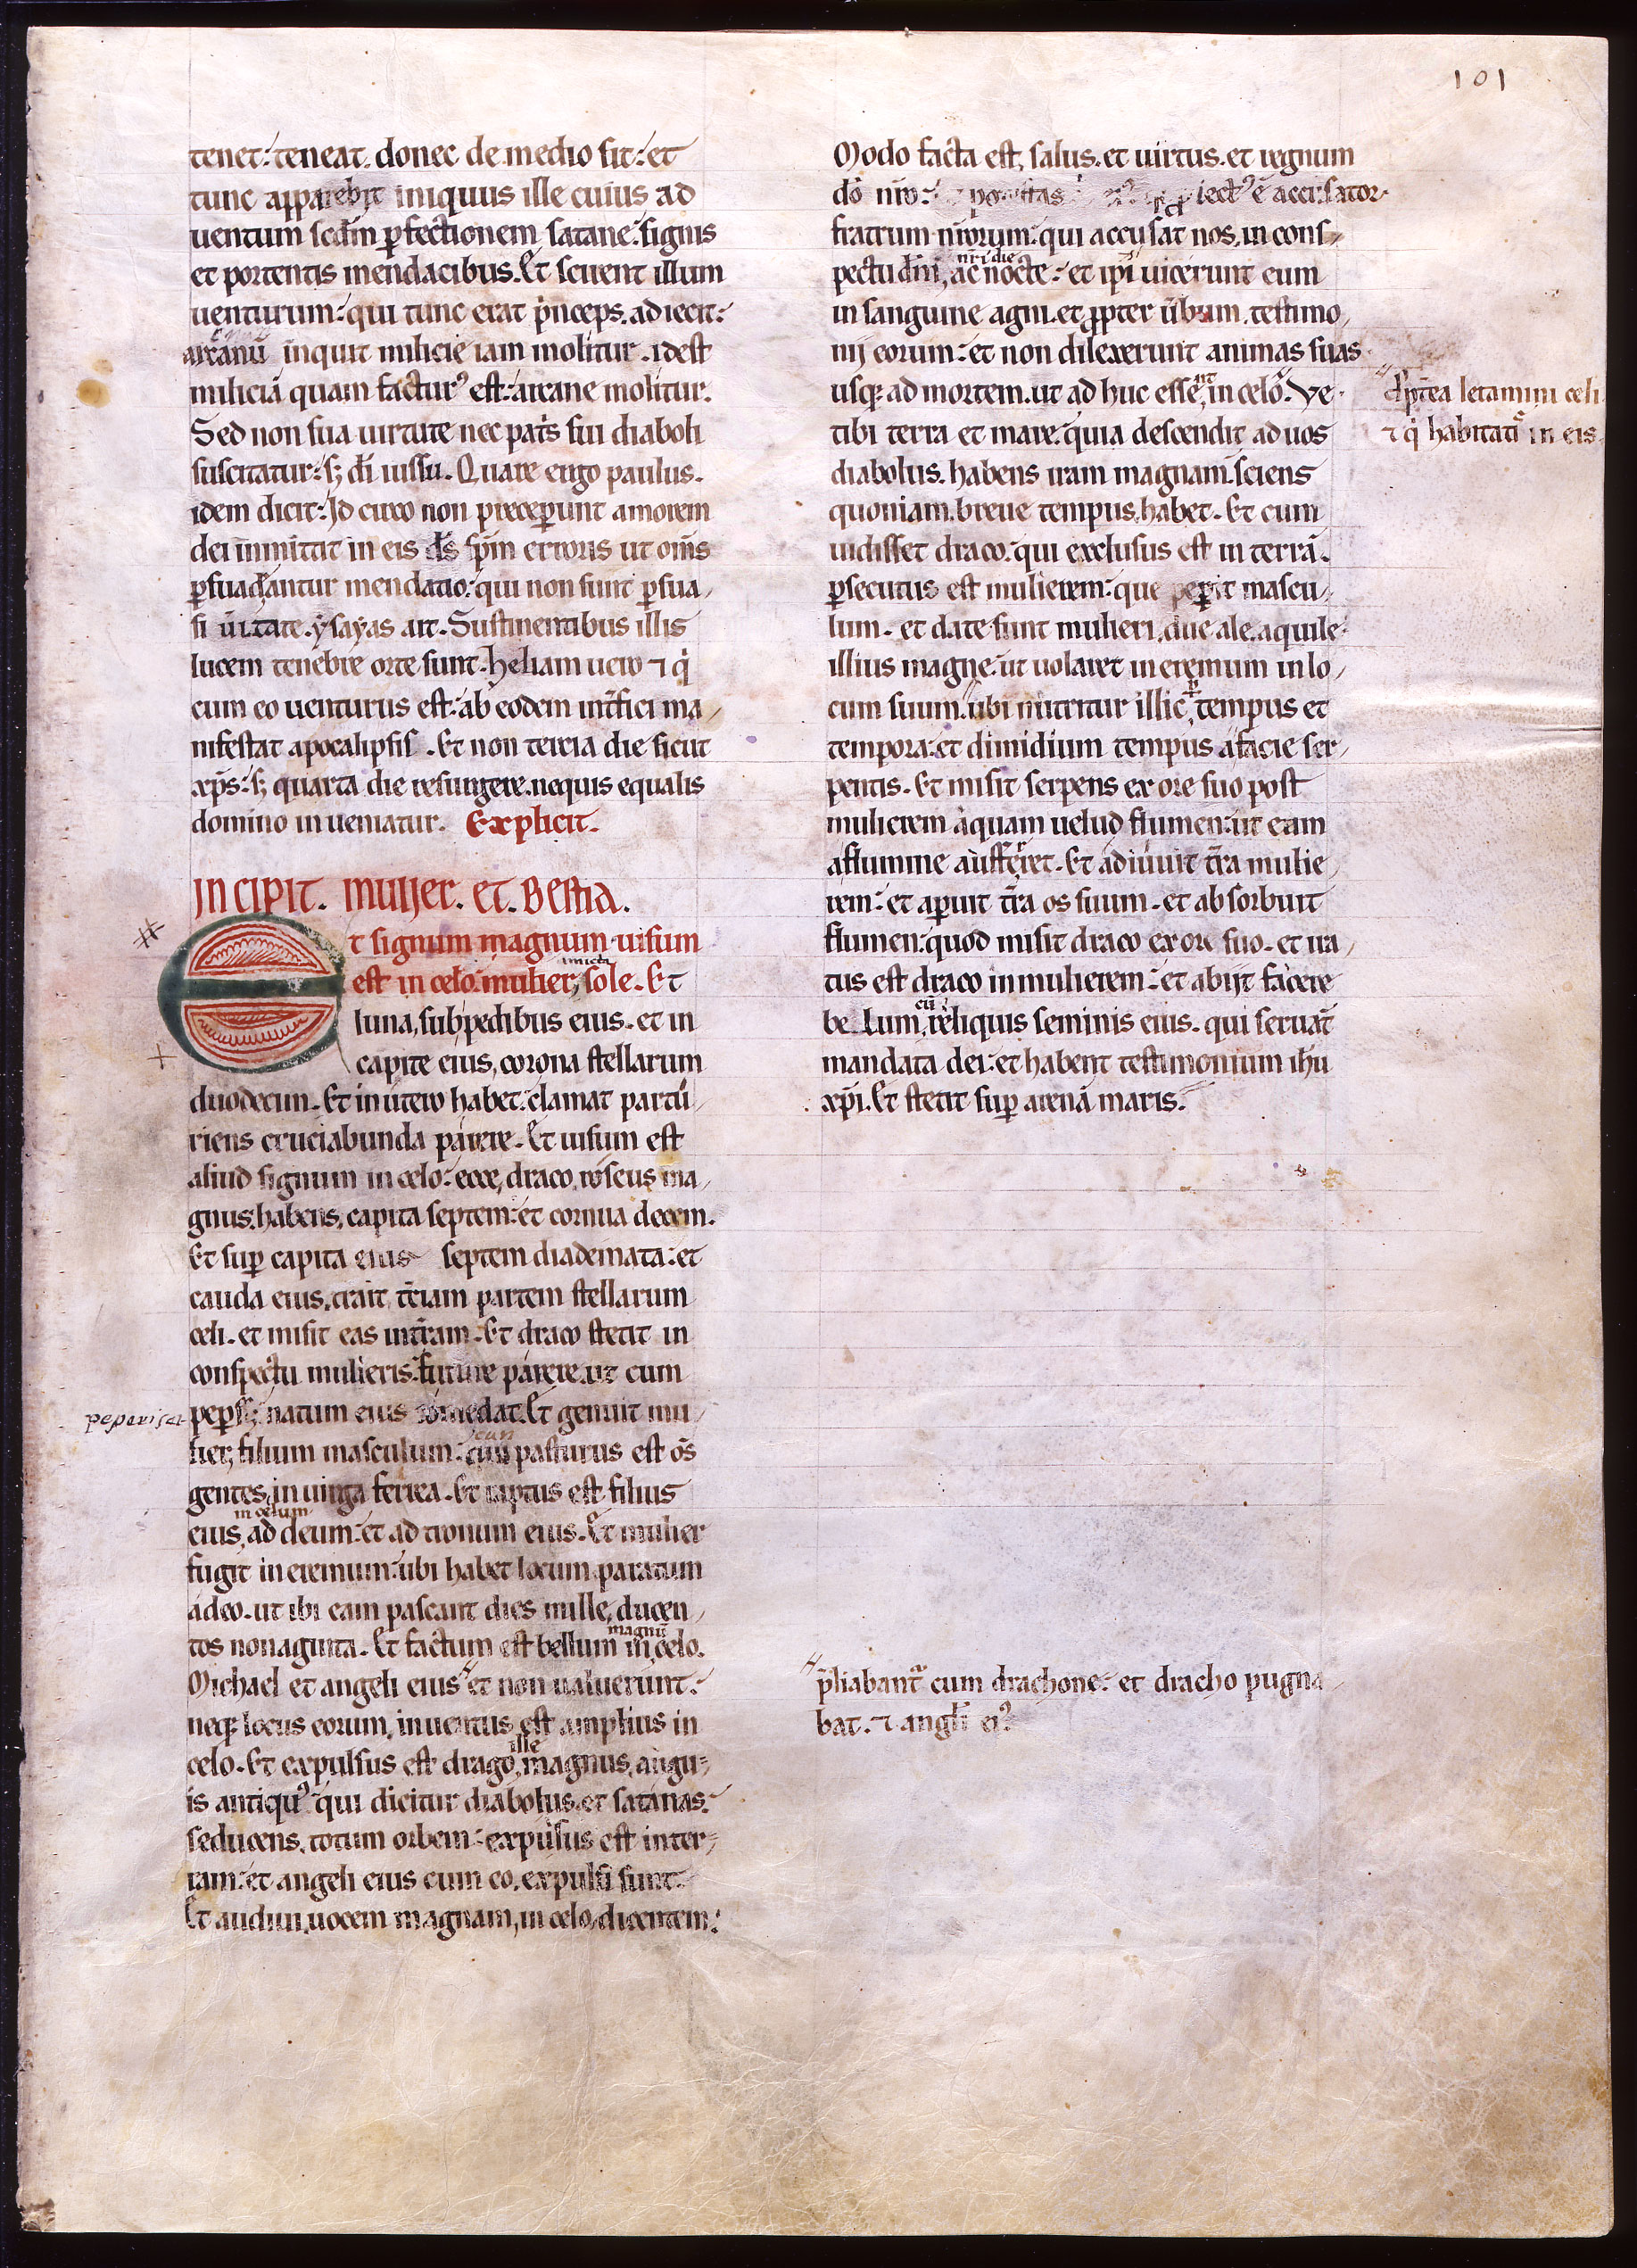 101
tenet: teneat. donec de medio fit: et
tunc apparebit iniquus ille cuius ad
uentum scdm pfectionem satane: signis
et portentis mendacibus. Et scirent illum
uenturum: qui tunc erat pnceps. adiecit:
arcanū inquit milicie iam molitur. idest
miliciā quam factur᾿ est: arcane molitur.
Sed non sua uirtute nec patis sui diaboli
suscitatur: s; di iussu. Quare ergo paulus.
idem dicit: Id circo non preceperunt amorem
dei inmittit in eis ds spm erroris ut oms
psuadeantur mendatio: qui non sunt psua
si ueritate. ysayas ait. Sustinentibus illis
lucem tenebre orte sunt. heliam uero ⁊ q
cum eo uenturus est: ab eodem intfici ma
nifestat apocalipsis. Et non tercia die sicut
xps: s; quarta die resurgere. nequis equalis
domino inueniatur. Explicit.
Incipit. mulier. et. Bestia.
Et signum magnum uisum
amicta
est in celo: mulier, sole. Et
luna, sub pedibus eius. et in
capite eius, corona stellarum
duodecim. Et in utero habet: clamat partu
riens cruciabunda parere. Et uisum est
aliud signum in celo: ecce, draco, roseus ma
gnus. habens, capita septem: et cornua decem.
Et sup capita eius septem diademata: et
cauda eius, trait, tciam partem stellarum
celi. et misit eas intram. Et draco stetit in
conspectu mulieris: future parere. ut cum
peperiset
natum eius comedat. Et genuit mu
lier, filium masculum: pasturus est os
gentes, in uirga ferrea. Et raptus est filius
in celum
eius, ad deum: et ad tronum eius. Et mulier
fugit in eremum: ubi habet locum paratum
adeo. ut ibi eam pascant dies mille, ducen
magnū
tos nonaginta. Et factum est bellum in celo.
Michael et angeli eius et non ualuerunt:
neq; locus eorum, inuentus est amplius in
ille
celo. Et expulsus est drago, magnus, angu
is antiqu᾿ qui dicitur diabolus. et satanas:
seducens, totum orbem: expulsus est inter
ram: et angeli eius cum eo, expulsi sunt.
Et audiui, uocem magnam, in celo, dicentem:
Modo facta est, salus. et uirtus. et regnum
dō nro: potestas iect᾿ ē accusator
fratrum nrorum: qui accusat nos. in cons
nri die
pectu dni, ac nocte: et ipi uicerunt eum
in sanguine agni. et ppter ūbum. testimo
nij eorum: et non dilexerunt animas suas
usq; ad mortem. ut ad huc esse in celo. Ve
dptea letamini celi
⁊ q habitati in eis
tibi terra et mare. quia descendit ad uos
diabolus. habens iram magnam. sciens
quoniam, breue tempus, habet. Et cum
uidisset draco. qui exclusus est in terrā.
psecutus est mulierem: que peperit mascu
lum. et date sunt mulieri, due ale, aquile
illius magne: ut uolaret in eremum in lo
cum suum. ubi nutritur illic, tempus et
tempora: et dimidium tempus a facie ser
pentis. Et misit serpens ex ore suo post
mulierem aquam uelud flumen: ut eam
a flumine aufferret. Et adiuuit tra mulie
rem: et apuit tra os suum. et absorbuit
flumen: quod misit draco ex ore suo. et ira
tus est draco in mulierem: et abijt facere
cū
bellum, reliquis seminis eius. qui seruat
mandata dei: et habent testimonium ihu
xpi. Et stetit sup arenā maris.
pliabant cum drachone: et dracho pugna
bat. ⁊ angli ei᾿